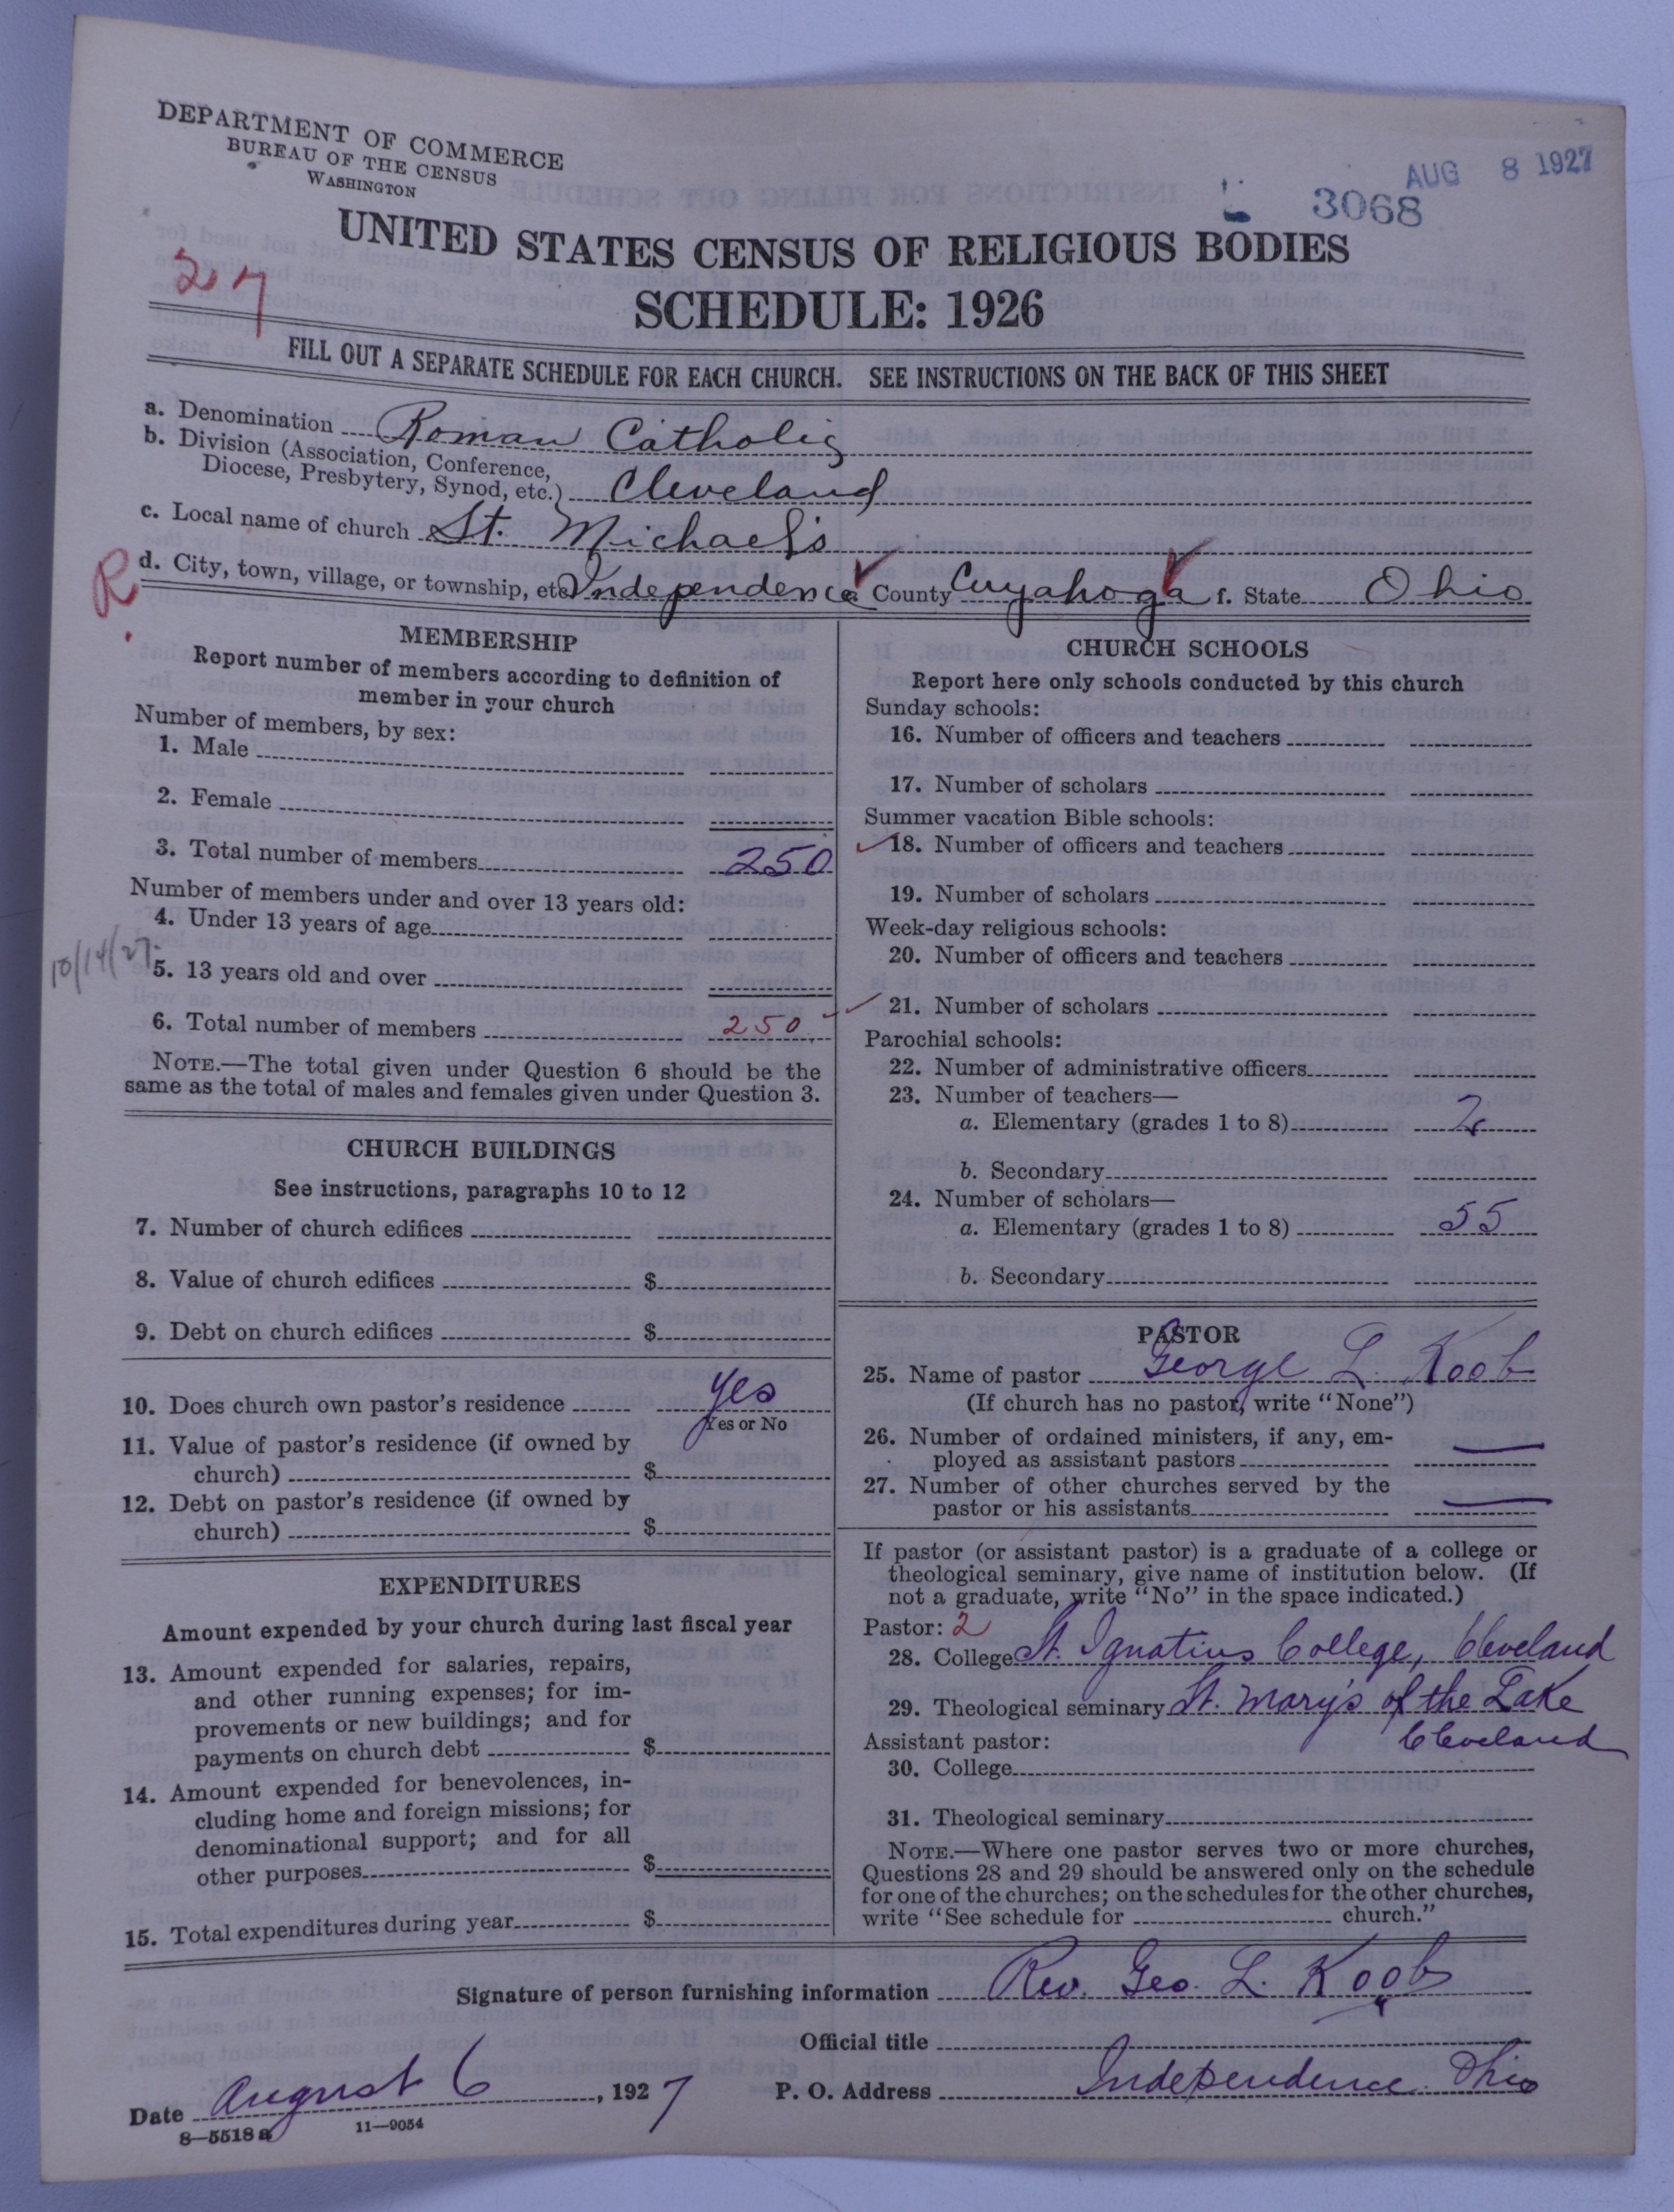 DEPARTMENT OF COMMERCE
BUREAU OF THE CENSUS
WASHINGTON
AUG 8 1927
3068
UNITED STATES CENSUS OF RELIGIOUS BODIES
27
SCHEDULE: 1926
FILL OUT A SEPARATE SCHEDULE FOR EACH CHURCH. SEE INSTRUCTIONS ON THE BACK OF THIS SHEET
a. Denomination Roman Catholic
b. Division (Association, Conference,
Diocese, Presbytery, Synod, etc.) Cleveland
c. Local name of church St. Michael's
R.
d. City, town, village, or township, etc. Independence County Cuyahoga f. State Ohio
MEMBERSHIP
Report number of members according to definition of
member in your church
Number of members, by sex:
1. Male
2. Female
3. Total number of members 250
Number of members under and over 13 years old:
4. Under 13 years of age
10/14/27.
5. 13 years old and over
6. Total number of members 250
NOTE.—The total given under Question 6 should be the
same as the total of males and females given under Question 3.
CHURCH BUILDINGS
See instructions, paragraphs 10 to 12
7. Number of church edifices
8. Value of church edifices $
9. Debt on church edifices $
10. Does church own pastor's residence yes
Yes or No
11. Value of pastor's residence (if owned by
church) $
12. Debt on pastor's residence (if owned by
church) $
EXPENDITURES
Amount expended by your church during last fiscal year
13. Amount expended for salaries, repairs,
and other running expenses; for im-
provements or new buildings; and for
payments on church debt $
14. Amount expended for benevolences, in-
cluding home and foreign missions; for
denominational support; and for all
other purposes $
15. Total expenditures during year $
CHURCH SCHOOLS
Report here only schools conducted by this church
Sunday schools:
16. Number of officers and teachers
17. Number of scholars
Summer vacation Bible schools:
18. Number of officers and teachers
19. Number of scholars
Week-day religious schools:
20. Number of officers and teachers
21. Number of scholars
Parochial schools:
22. Number of administrative officers
23. Number of teachers—
a. Elementary (grades 1 to 8) 2
b. Secondary
24. Number of scholars—
a. Elementary (grades 1 to 8) 55
b. Secondary
PASTOR
25. Name of pastor George L. Koob
(If church has no pastor, write "None")
26. Number of ordained ministers, if any, em-
ployed as assistant pastors —
27. Number of other churches served by the
pastor or his assistants —
If pastor (or assistant pastor) is a graduate of a college or
theological seminary, give name of institution below. (If
not a graduate, write "No" in the space indicated.)
Pastor: 2
28. College St. Ignatius College, Cleveland
29. Theological seminary St. Mary's of the Lake
Cleveland
Assistant pastor:
30. College
31. Theological seminary
NOTE.—Where one pastor serves two or more churches,
Questions 28 and 29 should be answered only on the schedule
for one of the churches; on the schedules for the other churches,
write "See schedule for church."
Signature of person furnishing information Rev. Geo. L. Koob
Official title
Date August 6, 1927 P. O. Address Independence Ohio
8—5518a 11—9054